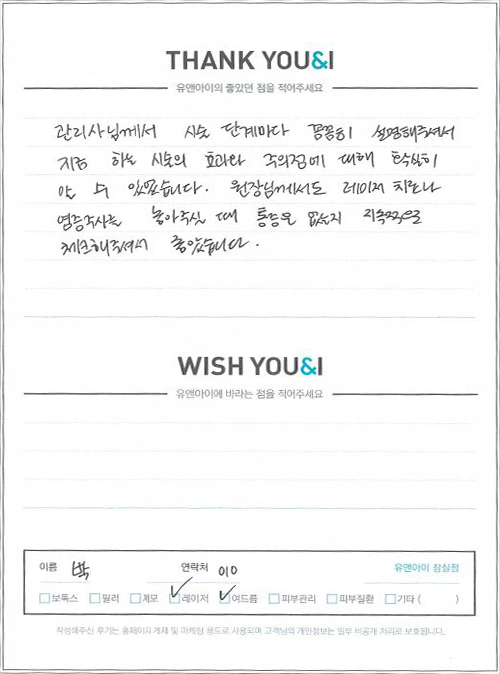 THANK YOU&I
유앤아이의 좋았던 점을 적어주세요
관리사님께서 시술 단계마다 꼼꼼히 설명해주셔서
지금 하는 시술의 효과와 주의점에 대해 확실히
알 수 있었습니다. 원장님께서도 레이저 치료나
염증주사를 놓아주실 때 통증은 없는지 지속적으로
체크해주셔서 좋았습니다.
WISH YOU&I
유앤아이에 바라는 점을 적어주세요
이름 박 연락처 010 유앤아이 잠실점
보톡스 필러 제모 레이저 여드름 피부관리 피부질환 기타 ( )
작성해주신 후기는 홈페이지 게재 및 마케팅 용도로 사용되며 고객님의 개인정보는 일부 비공개 처리로 보호됩니다.